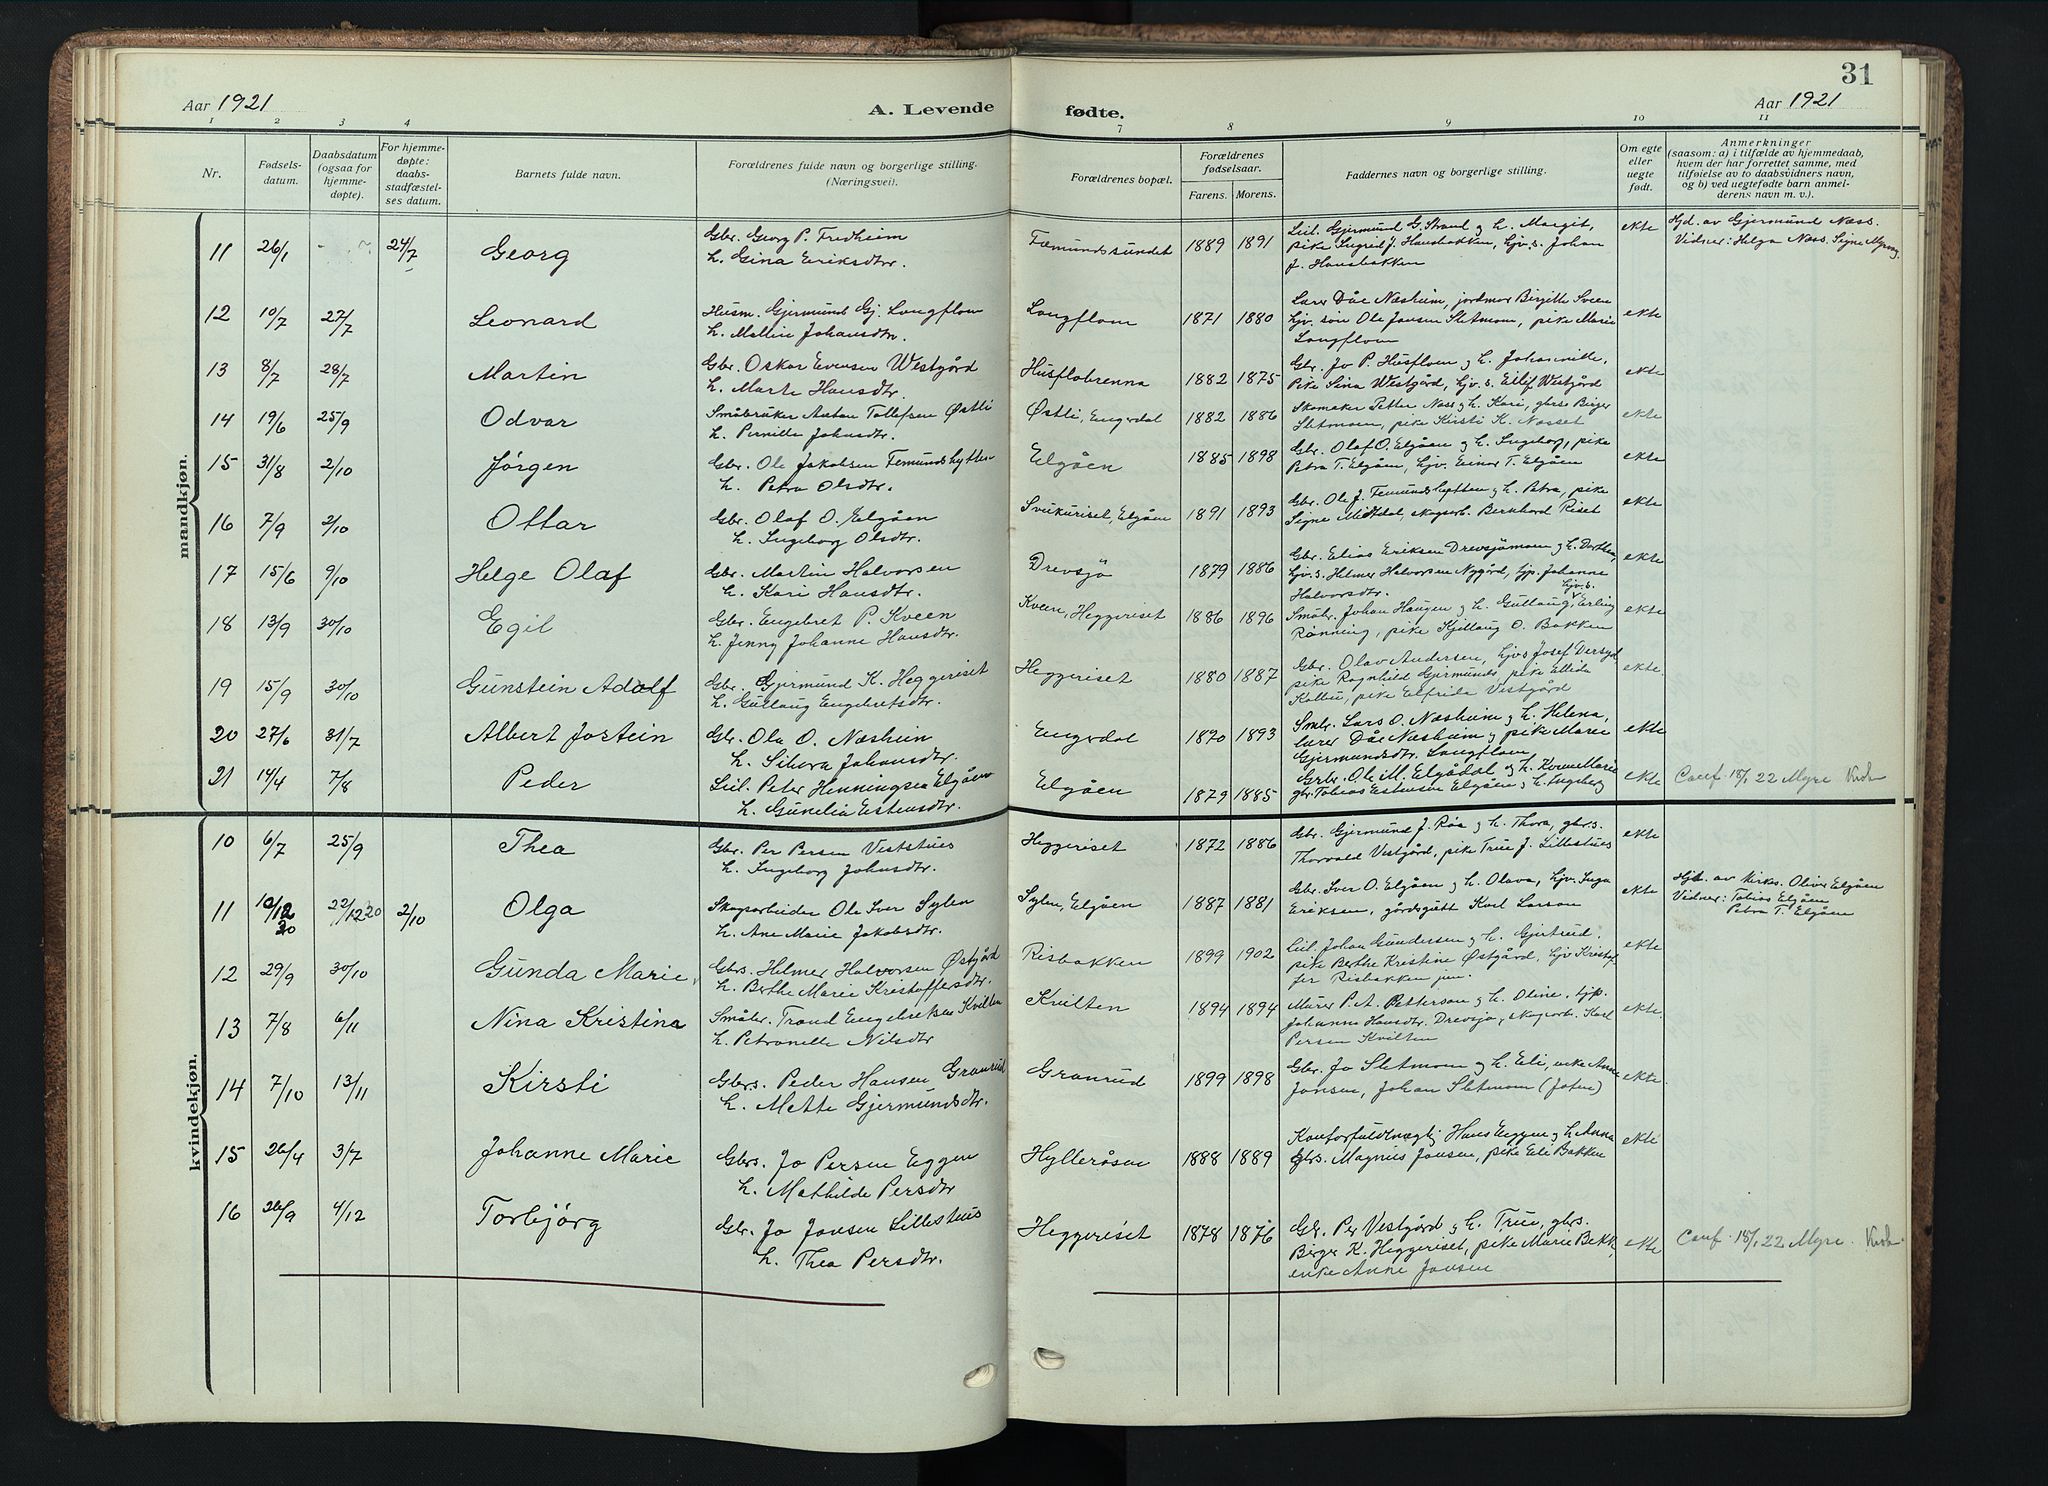 31
Aar 1921
A. Levende fødte.
Aar 1921
1 2 3 4 7 8 9 10 11
Nr.
Fødsels-
datum.
Daabsdatum
(ogsaa for
hjemme-
døpte).
For hjemme-
døpte:
daabs-
stadfæstel-
ses datum.
Barnets fulde navn.
Forældrenes fulde navn og borgerlige stilling.
(Næringsvei).
Forældrenes bopæl.
Forældrenes
fødselsaar.
Farens. Morens.
Faddernes navn og borgerlige stilling.
Om egte
eller
uegte
født.
Anmerkninger
(saasom: a) i tilfælde av hjemmedaab,
hvem der har forrettet samme, med
tilføielse av to daabsvidners navn,
og b) ved uegtefødte barn anmel-
derens navn m. v.).
mandkjøn.
11 26/1 24/7 Georg
Gbr. Georg P. Fredheim
h. Gina Eriksdtr.
Fæmundssundet 1889 1891
Leil. Gjermund G. Strand og h. Margit,
pike Ingrid J. Hansbakken, hjv. s. Johan
J. Hansbakken
ekte
Hjd. av Gjermund Næss.
Vidner: Helga Næss. Signe Myreng
12 10/7 27/7 Leonard
Husm. Gjermund Gj. Longflom
h. Mallin Johansdtr.
Longflom 1871 1880
Lærer Dåe Næsheim, jordmor Birgitte Sveen
hjv. søn Ole Jonsen Sletmom, pike Marie
Longflom
ekte
13 8/7 28/7 Martin
Gbr. Oskar Evensen Westgård
h. Marte Hansdtr.
Husflobrenna 1882 1875
Gbr. Jo P. Husfloen og h. Johannitte,
Pike Sina Westgård, hjv. s. Ellef Westgård
ekte
14 19/6 25/9 Odvar
Småbruker Anton Tollefsen Østli
h. Pernille Johnsdtr.
Østli, Engerdal 1882 1886
Skomaker Petter Næss og h. Kari, gbrsø Birger
Sletmoen, pike Kirsti K. Næsset
ekte
15 31/8 2/10 Jørgen
Gbr. Ole Jakobsen Femundshytten
h. Petra Olsdtr.
Elgåen 1885 1898
Gbr. Olaf O. Elgåen og h. Ingeborg, pike
Petra T. Elgåen, hjv. Einar T. Elgåen
ekte
16 7/9 2/10 Ottar
Gbr. Olaf O. Elgåen
h. Ingeborg Olsdtr.
Svukuriset, Elgåen 1891 1893
Gbr. Ole J. Femundshytten og h. Petra, pike
Signe Mitdal, skogsarb. Bernhard Riset
ekte
17 15/6 9/10 Helge Olaf
Gbr. Martin Halvorsen
h. Kari Hansdtr.
Drevsjø 1879 1886
Gbr. Elias Eriksen Drevsjømoen og h. Dorthea,
hjv. s. Helmer Halvorsen Nygård, hjp. Johanne
Halvorsdtr.
ekte
18 13/9 30/10 Egil
Gbr. Engebret P. Kveen
h. Jenny Johanne Hansdtr.
Kveen, Heggeriset 1886 1896
Småbr. Johan Haugen og h. Gullaug, hjv. s. Erling
Rønning, pike Kjellaug O. Bakken
ekte
19 15/9 30/10 Gunstein Adolf
Gbr. Gjermund K. Heggeriset
h. Gullaug Engebretsdtr.
Heggeriset 1880 1887
Gbr. Olav Andersen, hjvs Josef
pike Ragnhild Gjermunds, pike
pike Elfrida Vestgård
ekte.
20 27/6 31/7 Albert Jostein
Gbr. Ola O. Næsheim
h. Johansdtr.
Engerdal 1870 1893
Smbr. Lars O. Næsheim og h. Helena,
lærer Dåe Næsheim og pike Marie
Gjermundsdtr. Longflom
ekte
21 14/4 7/8 Peder
Leil. Peter Henningsen Elgåen
h. Gunelia Estensdtr.
Elgåen 1879 1885
Grbr. Ole M. Elgådal og h. Marie
gbr. Tobias Estensen Elgåen og h. Ingeborg
ekte
Conf. 18/1 22 Myre
kvindekjøn.
10 6/7 25/9 Thea
Gbr. Per Persen Veststues
h. Ingeborg Johnsdtr.
Heggeriset 1872 1886
Gbr. Gjermund J. Røa og h. Thora, gbr. s.
Thorvald Vestgård, pike Trui J. Lillestues
ekte
11 10/12 20 22/12 20 2/10 Olga
Skogsarbeider Ole Iver Sylen
h. Ane Marie Jakobsdtr.
Sylen, Elgåen 1887 1881
Gbr. Iver O. Elgåen og h. Olava, hjv. Inga
Eriksen, gårdsgutt Karl Larsen
ekte
Hjd. av kirkes. Oliver Elgåen
Vidner: Tobias Elgåen
Petra T. Elgåen
12 29/9 30/10 Gunda Marie
Gbrs. Helmer Halvorsen Østgård
h. Berthe Marie Kristoffersdtr.
Risbakken 1899 1902
Leil. Johan Gundersen og h. Gjertrud,
pike Berthe Kristine Østgård, hjv Kristof-
fer Risbakken jun.
ekte
13 7/8 6/11 Nina Kristina
Småbr. Trond Engebretsen Kvilten
h. Petronelle Nilsdtr
Kvilten 1894 1894
Murer P. A. Petterson og h. Oline, hjp.
Johanne Hansdtr. Drevsjø, skogsarb. Karl
Persen Kvilten
ekte.
14 7/10 13/11 Kirsti
Gbrs. Peder Hansen Granrud
h. Mette Gjermundsdtr.
Granrud 1899 1898
Gbr. Jo Sletmom og h. Eli, enke Anne
Jonsen, Johan Sletmom (Joten)
ekte.
15 26/4 3/7 Johanne Marie
Gbrs. Jo Persen Eggen
h. Mathilde Persdtr
Hylleråsen 1888 1889
Kontorfuldmægtig Hans Eggen og h. Anna
Gbrs. Magnus Jonsen, pike Eli Bakken
ekte
16 26/9 4/12 Torbjørg
Gbr. Jo Jonsen Lillestues
h. Thea Persdtr.
Heggeriset 1878 1876
Gbr. Per Vestgård og h. Trui, gbrs.
Birger K. Heggeriset, pike Marie Bekk
enke Anne Jonsen
ekte
Conf. 18/1 22 Myre